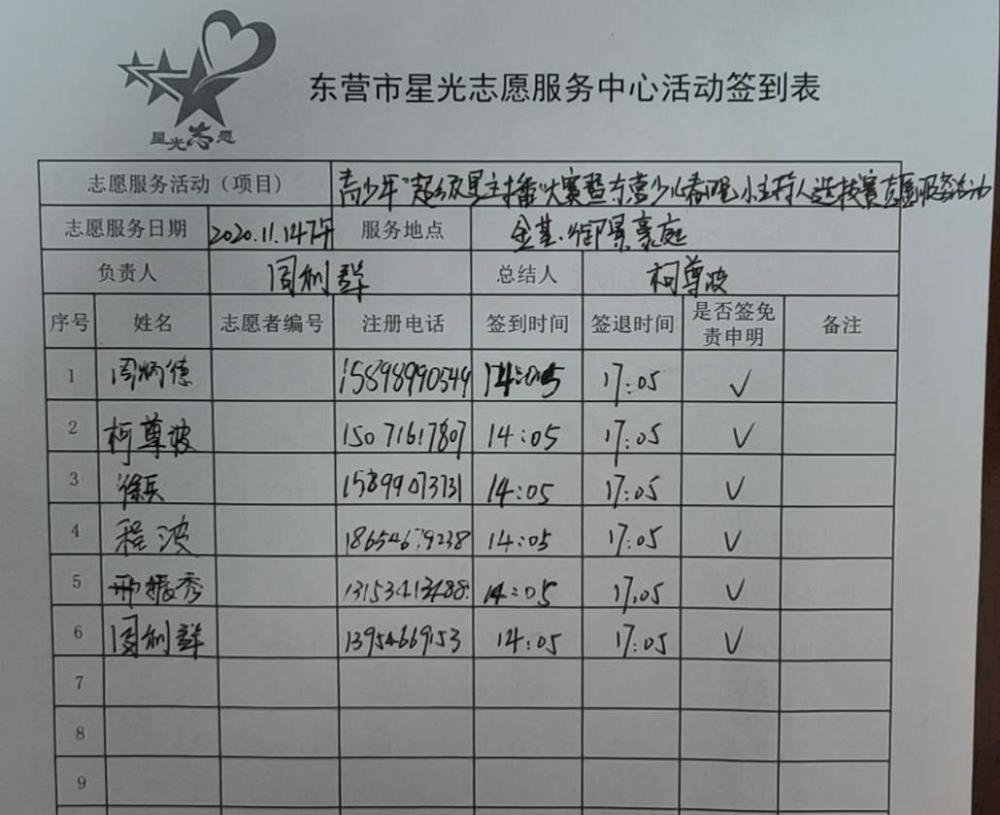 星光志愿
东营市星光志愿服务中心活动签到表
志愿服务活动（项目） 青少年"超级星主播"大赛暨东营少儿春晚小主持人选拔赛志愿服务活动
志愿服务日期 2020.11.14下午 服务地点 金基·御景豪庭
负责人 周利群 总结人 柯尊波
序号 姓名 志愿者编号 注册电话 签到时间 签退时间 是否签免责申明 备注
1 周炳德 15898990349 14:05 17:05 √
2 柯尊波 15071617807 14:05 17:05 √
3 徐兵 15899073731 14:05 17:05 √
4 程波 14:05 17:05 √
5 邢振秀 14:05 17.05 √
6 周利群 13954669153 14:05 17:05 √
7
8
9